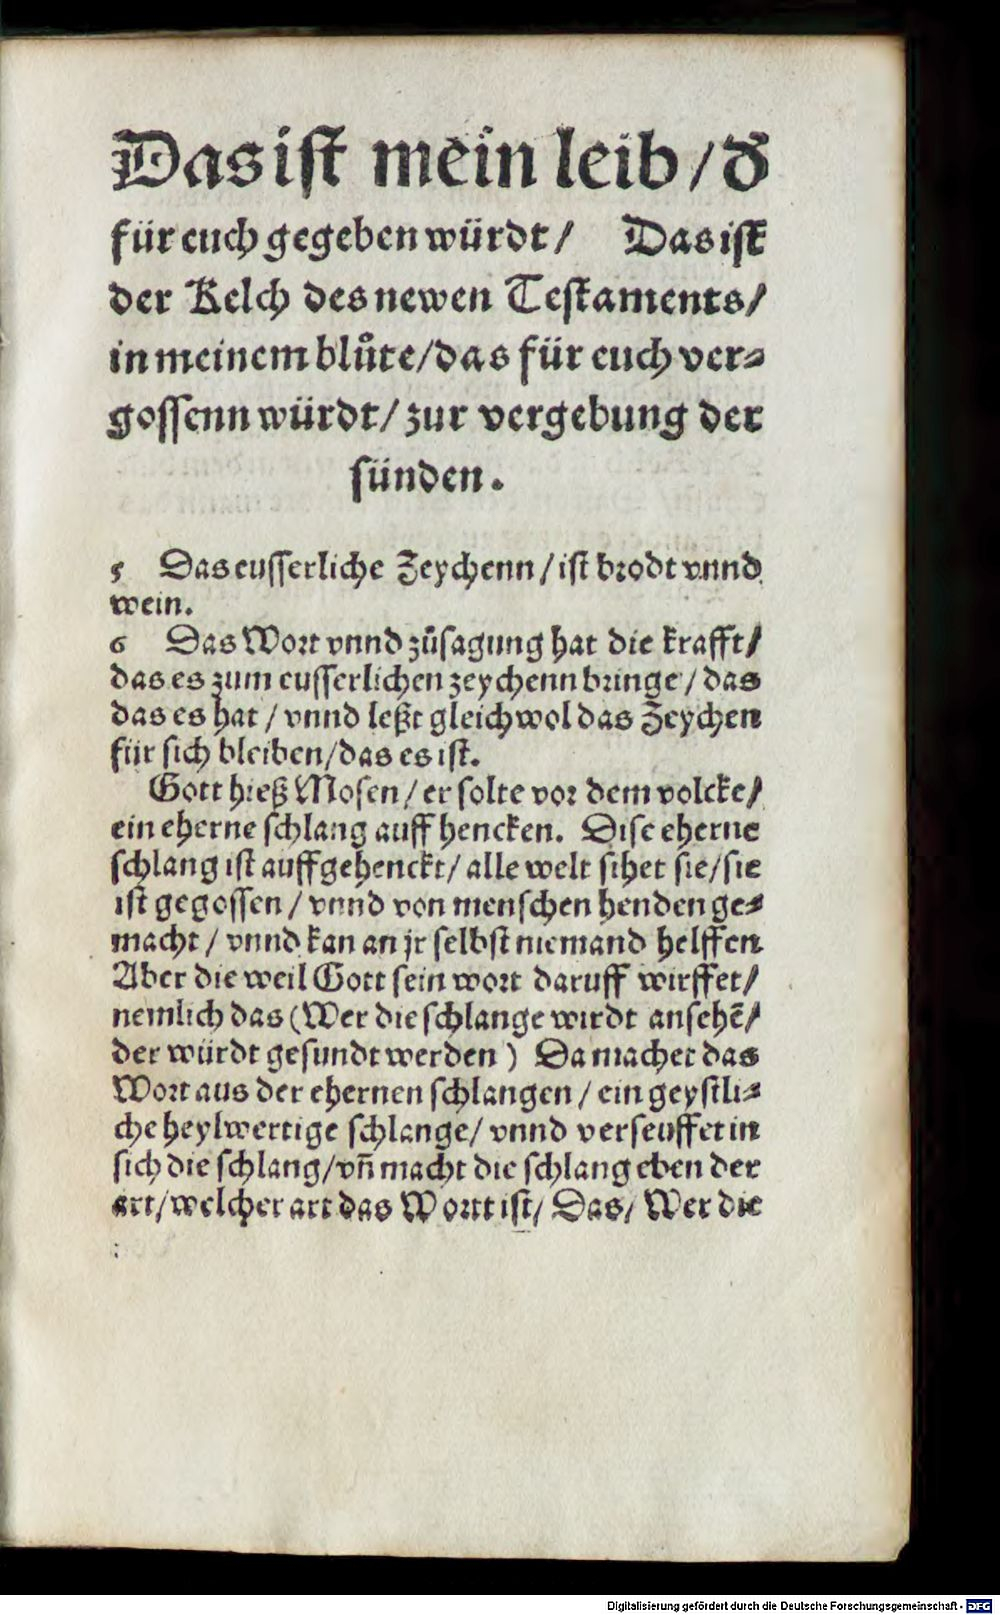 Das ist mein leib / d̕
für euch gegeben würdt / Das ist
der Kelch des newen Testaments /
in meinem blůte / das für euch ver⸗
gossenn würdt / zur vergebung der
sünden.
5 Das eusserliche Zeychenn / ist brodt vnnd
wein.
6 Das Wort vnnd zůsagung hat die krafft /
das es zum eusserlichen zeychenn bringe / das
das es hat / vnnd leßt gleichwol das Zeychen
für sich bleiben / das es ist.
Gott hieß Mosen / er solte vor dem volcke /
ein eherne schlang auff hencken. Dise eherne
schlang ist auffgehenckt / alle welt sihet sie / sie
ist gegossen / vnnd von menschen henden ge⸗
macht / vnnd kan an jr selbst niemand helffen
Aber die weil Gott sein wort daruff wirffet /
nemlich das (Wer die schlange wirdt ansehē /
der würdt gesundt werden) Da machet das
Wort aus der ehernen schlangen / ein geystli⸗
che heylwertige schlange / vnnd verseuffet in
sich die schlang / vn̄ macht die schlang eben der
art / welcher art das Wortt ist / Das / Wer die
Digitalisierung gefördert durch die Deutsche Forschungsgemeinschaft - DFG